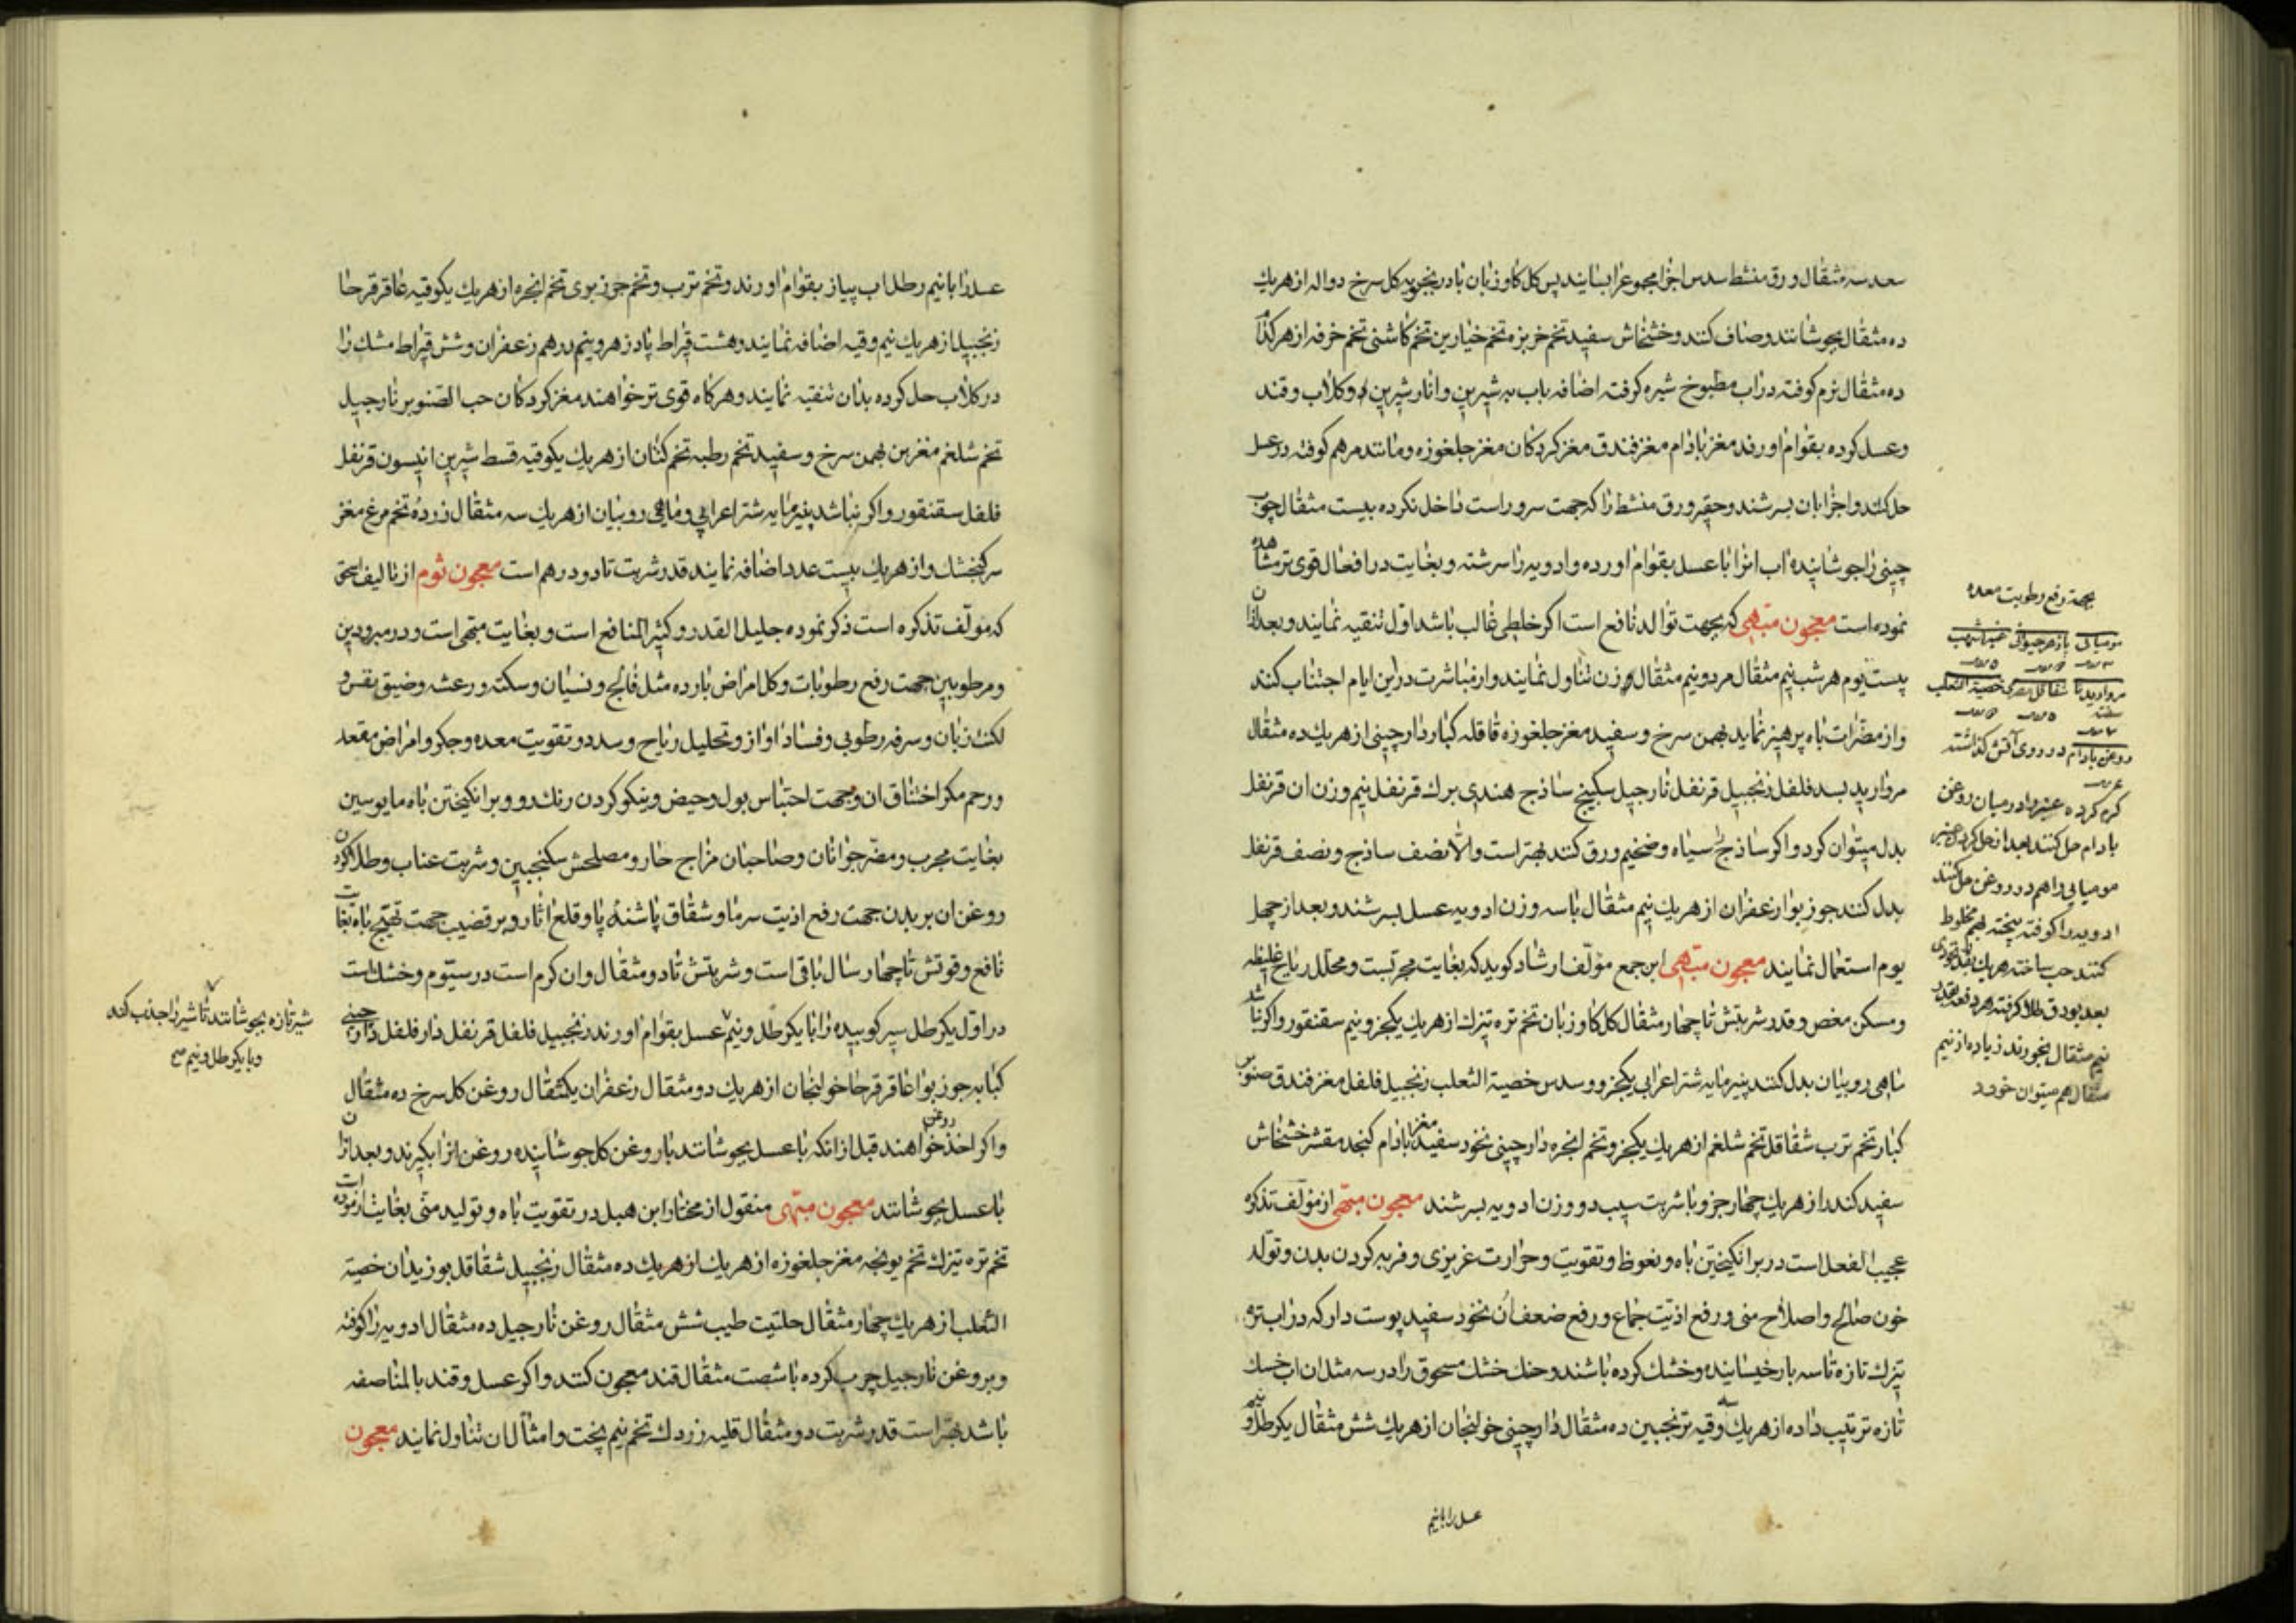 سعد سه مثقال ورق منشط سدس اجزا مجموع را بسایند پس کل کاو زبان بادرنجویه کل سرخ دواله از هریك
ده مثقال بجوشانند و صاف کنند و خشخاش سفید تخم خربزه تخم خیارین تخم کاشنی تخم خرفه از هر کدام
ده مثقال نرم کوفته در اب مطبوخ شیره کرفته اضافه باب به شیرین و انار شیرین و کلاب و قند
و عسل کرده بقوام اورند مغز بادام مغز فندق مغز کردکان مغز جلغوزه و مانند مرهم کوفته در عسل
حل کنند و اجزا بان بسرشند و حقیر ورق منشط را که جهت سرور است داخل نکرده بیست مثقال چوب
چینی را جوشانیده اب انرا با عسل بقوام اورده و ادویه را سرشته و بغایت در افعال قوی تر مشاهده
نموده است معجون مبهی که بجهت توالد نافع است اکر خلطی غالب باشد اول تنقیه نمایند و بعد ازان
بیست یوم هر شب نیم مثقال مرد و نیم مثقال زن تناول نمایند و از مباشرت در این ایام اجتناب کنند
و از مضرات باه پرهیز نماید بهمن سرخ و سفید مغز جلغوزه قاقله کبار دارچینی از هریك ده مثقال
مروارید بسد فلفل زنجبیل قرنفل نارجیل سکبینج ساذج هندی برك قرنفل نیم وزن ان قرنفل
بدل میتوان کرد و اکر ساذج سیاه و ضخیم ورق کنند بهتر است والا نصف ساذج و نصف قرنفل
بدل کنند جوز بوا زعفران از هریك نیم مثقال با سه وزن ادویه عسل بسرشند و بعد از چهل
یوم استعمال نمایند معجون مبهی ابن جمع مؤلف ارشاد کوید که بغایت مجربست و محلل ریاح غلیظه
و مسکن مغص و قدر شربتش تا چهار مثقال کل کاو زبان تخم تره تیزك از هریك یکجزو نیم سقنقور و اکر نباشد
ماهی روبیان بدل کنند پنیر مایه شتر اعرابی یکجزو و سدس خصیة الثعلب زنجبیل فلفل مغز فندق صنوبر
کبار تخم ترب شقاقل تخم شلغم از هریك یکجزو تخم انجره دارچینی نخود سفید مغز بادام کنجد مقشر خشخاش
سفید کندر از هریك چهار جزو با شربت سیب دو وزن ادویه بسرشند معجون مبهی از مؤلف تذکره
عجیب الفعل است در برانکیختن باه و نعوظ و تقویت و حرارت غریزی و فربه کردن بدن و تولد
خون صالح و اصلاح منی و رفع اذیت جماع و رفع ضعف ان نخود سفید پوست دار که در اب تره
تیزك تازه تا سه بار خیسانیده و خشك کرده باشند و حنك خشك مسحوق را در سه مثل ان اب خسك
تازه ترتیب داده از هریك سه وقیه ترنجبین ده مثقال دارچینی خولنجان از هریك شش مثقال یکرطل و نیم
عسل را بانیم
بجهة رفع رطوبت معده
مومیائی پازهر حیوانی عنبر اشهب
مروارید شقاقل مصری خصیة الثعلب
روغن بادام در روی آتش کذاشته
کرم کرده عنبر را در میان روغن
بادام حل کنند بعد از حل کردن عنبر
مومیائی را هم در روغن حل کنند
ادویه را کوفته بیخته بهم مخلوط
کنند حب ساخته هر یك بقدر نخودی
بعد بورق طلا کرفته هر دفعه بقدر
نیم مثقال بخورند زیاده از نیم
مثقال هم میتوان خورد
عسل را بانیم رطل اب پیاز بقوام اورند و تخم ترب و تخم جزر بری تخم انجره از هریك یکوقیه عاقرقرحا
زنجبیل از هریك نیم وقیه اضافه نمایند و هشت قیراط پادزهر و نیم درهم زعفران و شش قیراط مشك را
در کلاب حل کرده بدان تنقیه نمایند و هرکاه قوی تر خواهند مغز کردکان حب الصنوبر نارجیل
تخم شلغم مغز بن بهمن سرخ و سفید تخم رطبه تخم کتان از هریك یکوقیه قسط شیرین انیسون قرنفل
فلفل سقنقور و اکر نباشد پنیر مایه شتر اعرابی و ماهی روبیان از هریك سه مثقال زرده تخم مرغ مغز
سر کنجشك و از هریك بیست عدد اضافه نمایند قدر شربت تا دو درهم است معجون ثوم از تالیف اسحق
که مؤلف تذکره است ذکر نموده جلیل القدر و کثیر المنافع است و بغایت مبهی است و در مبرودین
و مرطوبین جهت رفع رطوبات و کل امراض بارده مثل فالج و نسیان و سکته و رعشه و ضیق نفس و
لکنت زبان و سرفه رطوبی و فساد اواز و تحلیل ریاح و سدد و تقویت معده و جکر و امراض مقعد
و رحم مکر اختناق ان و جهت احتباس بول و حیض و نیکو کردن رنك رو و برانکیختن باه مایوسین
بغایت مجرب و مضر جوانان و صاحبان مزاج حار و مصلحش سکنجبین و شربت عناب و طلا کردن
روغن ان بر بدن جهت رفع اذیت سرما و شقاق پاشنه پا و قلع اثار و بر قضیب جهت تهییج باه بغایت
نافع و قوتش تا چهار سال باقی است و شربتش تا دو مثقال و ان کرم است در سیوم و خشك است
در اول یکرطل سیر کوبیده را با یکرطل و نیم عسل بقوام اورند زنجبیل فلفل قرنفل دار فلفل دارچینی
کبابه جوز بوا عاقرقرحا خولنجان از هریك دو مثقال زعفران یکمثقال روغن کل سرخ ده مثقال
و اکر اخذ روغن خواهند قبل از انکه با عسل بجوشانند با روغن کل جوشانیده روغن انرا بکیرند و بعد ازان
با عسل بجوشانند معجون مبهی منقول از مختار ابن هبل در تقویت باه و تولید منی بغایت ازموده است
تخم تره تیزك تخم یونجه مغز جلغوزه از هریك از هریك ده مثقال زنجبیل شقاقل بوزیدان خصیة
الثعلب از هریك چهار مثقال حلتیت طیب شش مثقال روغن نارجیل ده مثقال ادویه را کوفته
و بروغن نارجیل چرب کرده با شصت مثقال قند معجون کنند و اکر عسل و قند بالمناصفه
باشد بهتر است قدر شربت دو مثقال قلیه زردك تخم نیم پخت و امثال ان تناول نمایند معجون
شیر تازه بجوشانند تا شیر را جذب کند
و با یکرطل و نیم صح